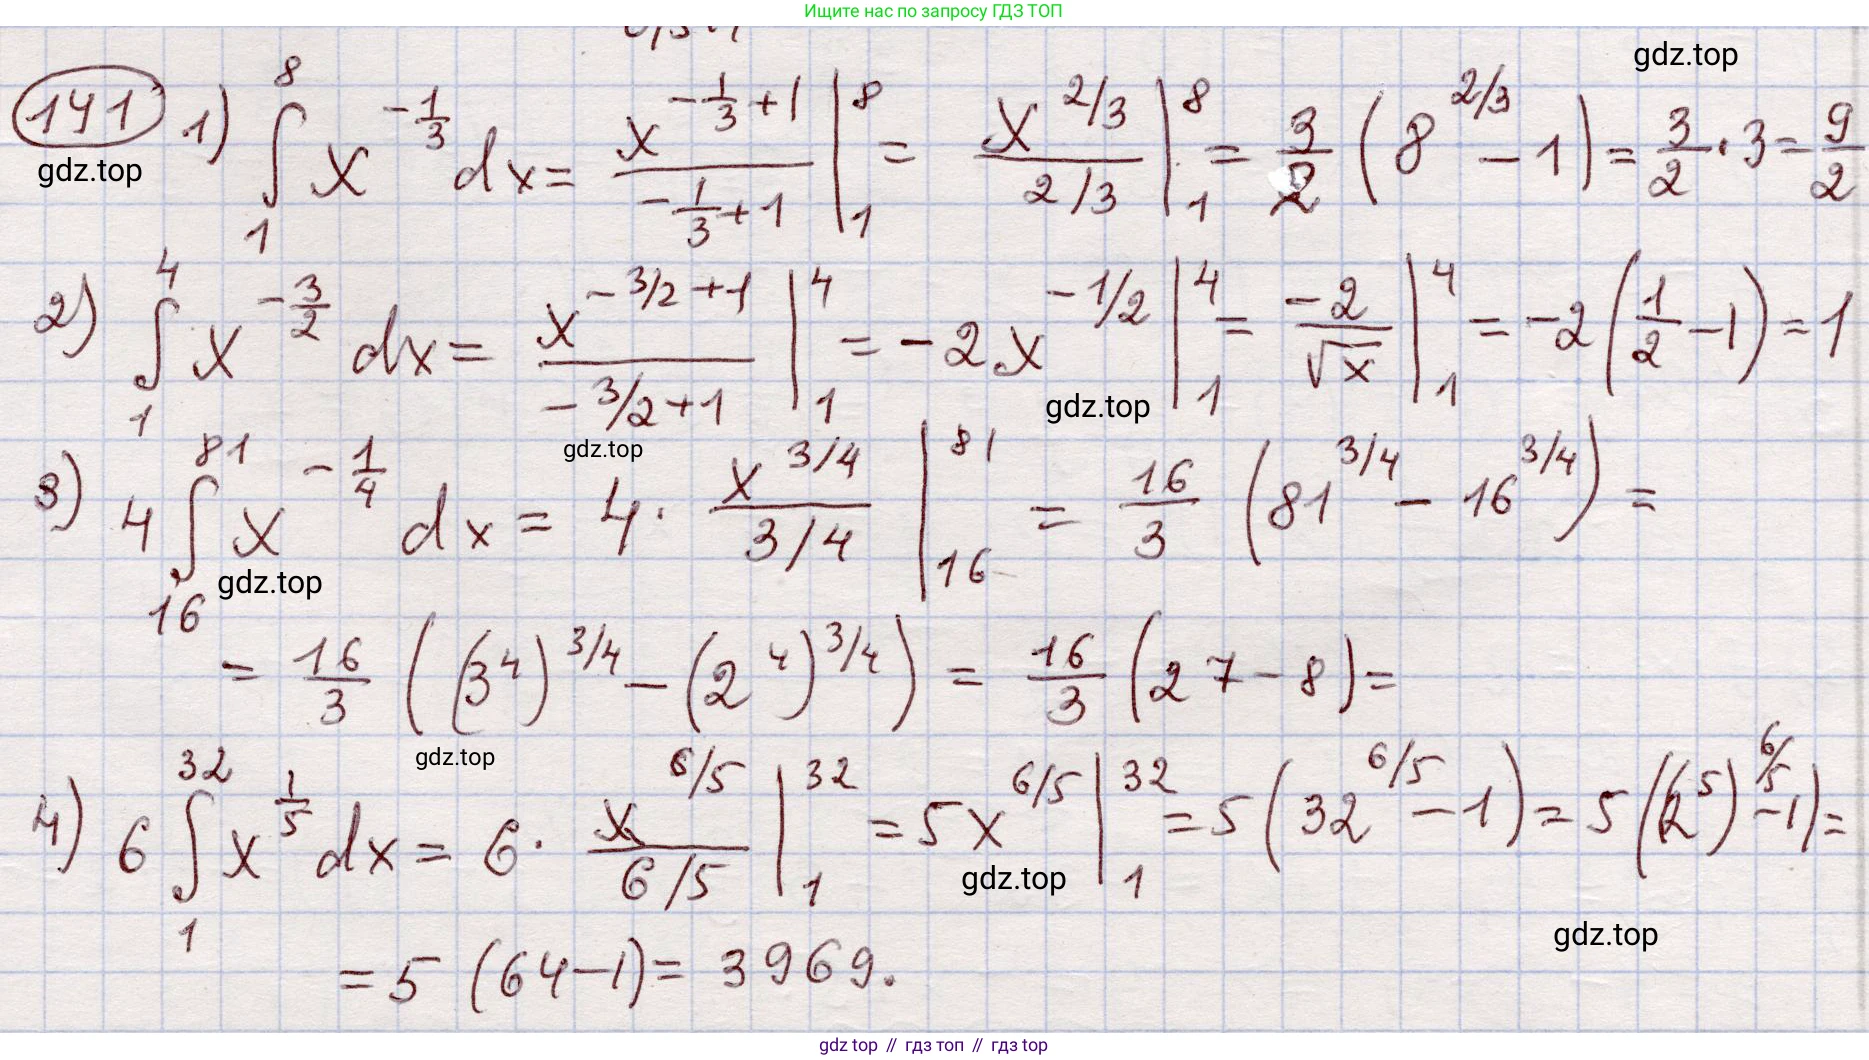 Ищите нас по запросу ГДЗ ТОП
gdz.top
141 1) ∫₁⁸ x^(-1/3) dx = x^(-1/3+1)/(-1/3+1) |₁⁸ = x^(2/3)/(2/3) |₁⁸ = 3/2 (8^(2/3) - 1) = 3/2 · 3 = 9/2
gdz.top
2) ∫₁⁴ x^(-3/2) dx = x^(-3/2+1)/(-3/2+1) |₁⁴ = -2x^(-1/2) |₁⁴ = -2/√x |₁⁴ = -2(1/2 - 1) = 1
gdz.top
gdz.top
3) 4 ∫₁₆⁸¹ x^(-1/4) dx = 4 · x^(3/4)/(3/4) |₁₆⁸¹ = 16/3 (81^(3/4) - 16^(3/4)) =
gdz.top
= 16/3 ((3^4)^(3/4) - (2^4)^(3/4)) = 16/3 (27 - 8) =
gdz.top
4) 6 ∫₁³² x^(1/5) dx = 6 · x^(6/5)/(6/5) |₁³² = 5x^(6/5) |₁³² = 5(32^(6/5) - 1) = 5((2^5)^(6/5) - 1) =
gdz.top
gdz.top
= 5 (64 - 1) = 3969.
gdz top // гдз топ // гдз top